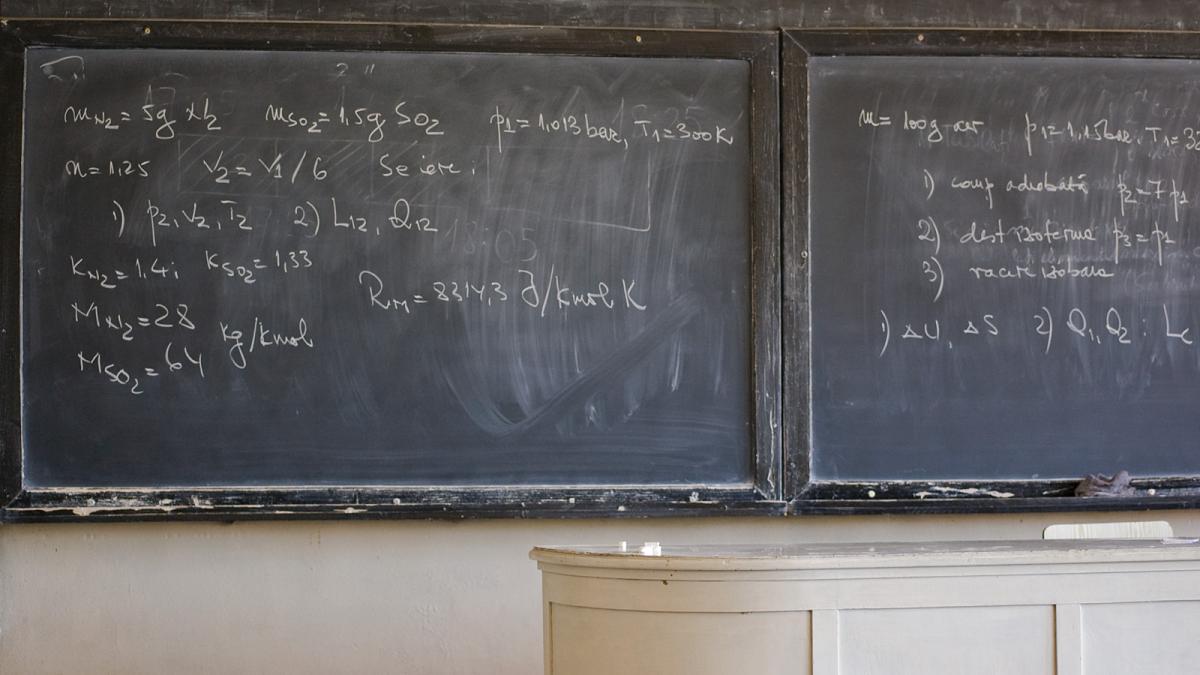 m_N₂ = 5g N₂ m_SO₂ = 1,5g SO₂ p₁ = 1,013 bar, T₁ = 300K
n = 1,25 V₂ = V₁/6 Se cere:
1) p₂, V₂, T₂ 2) L₁₂, Q₁₂
K_N₂ = 1,4; K_SO₂ = 1,33
R_M = 8314,3 J/kmol K
M_N₂ = 28
M_SO₂ = 64 kg/kmol
m = 100g aer p₁ = 1,15bar, T₁ = 30
1) comp adiabată p₂ = 7 p₁
2) dest izoterma p₃ = p₁
3) racire izobara
1) ΔU, ΔS 2) Q₁, Q₂ ; Lc